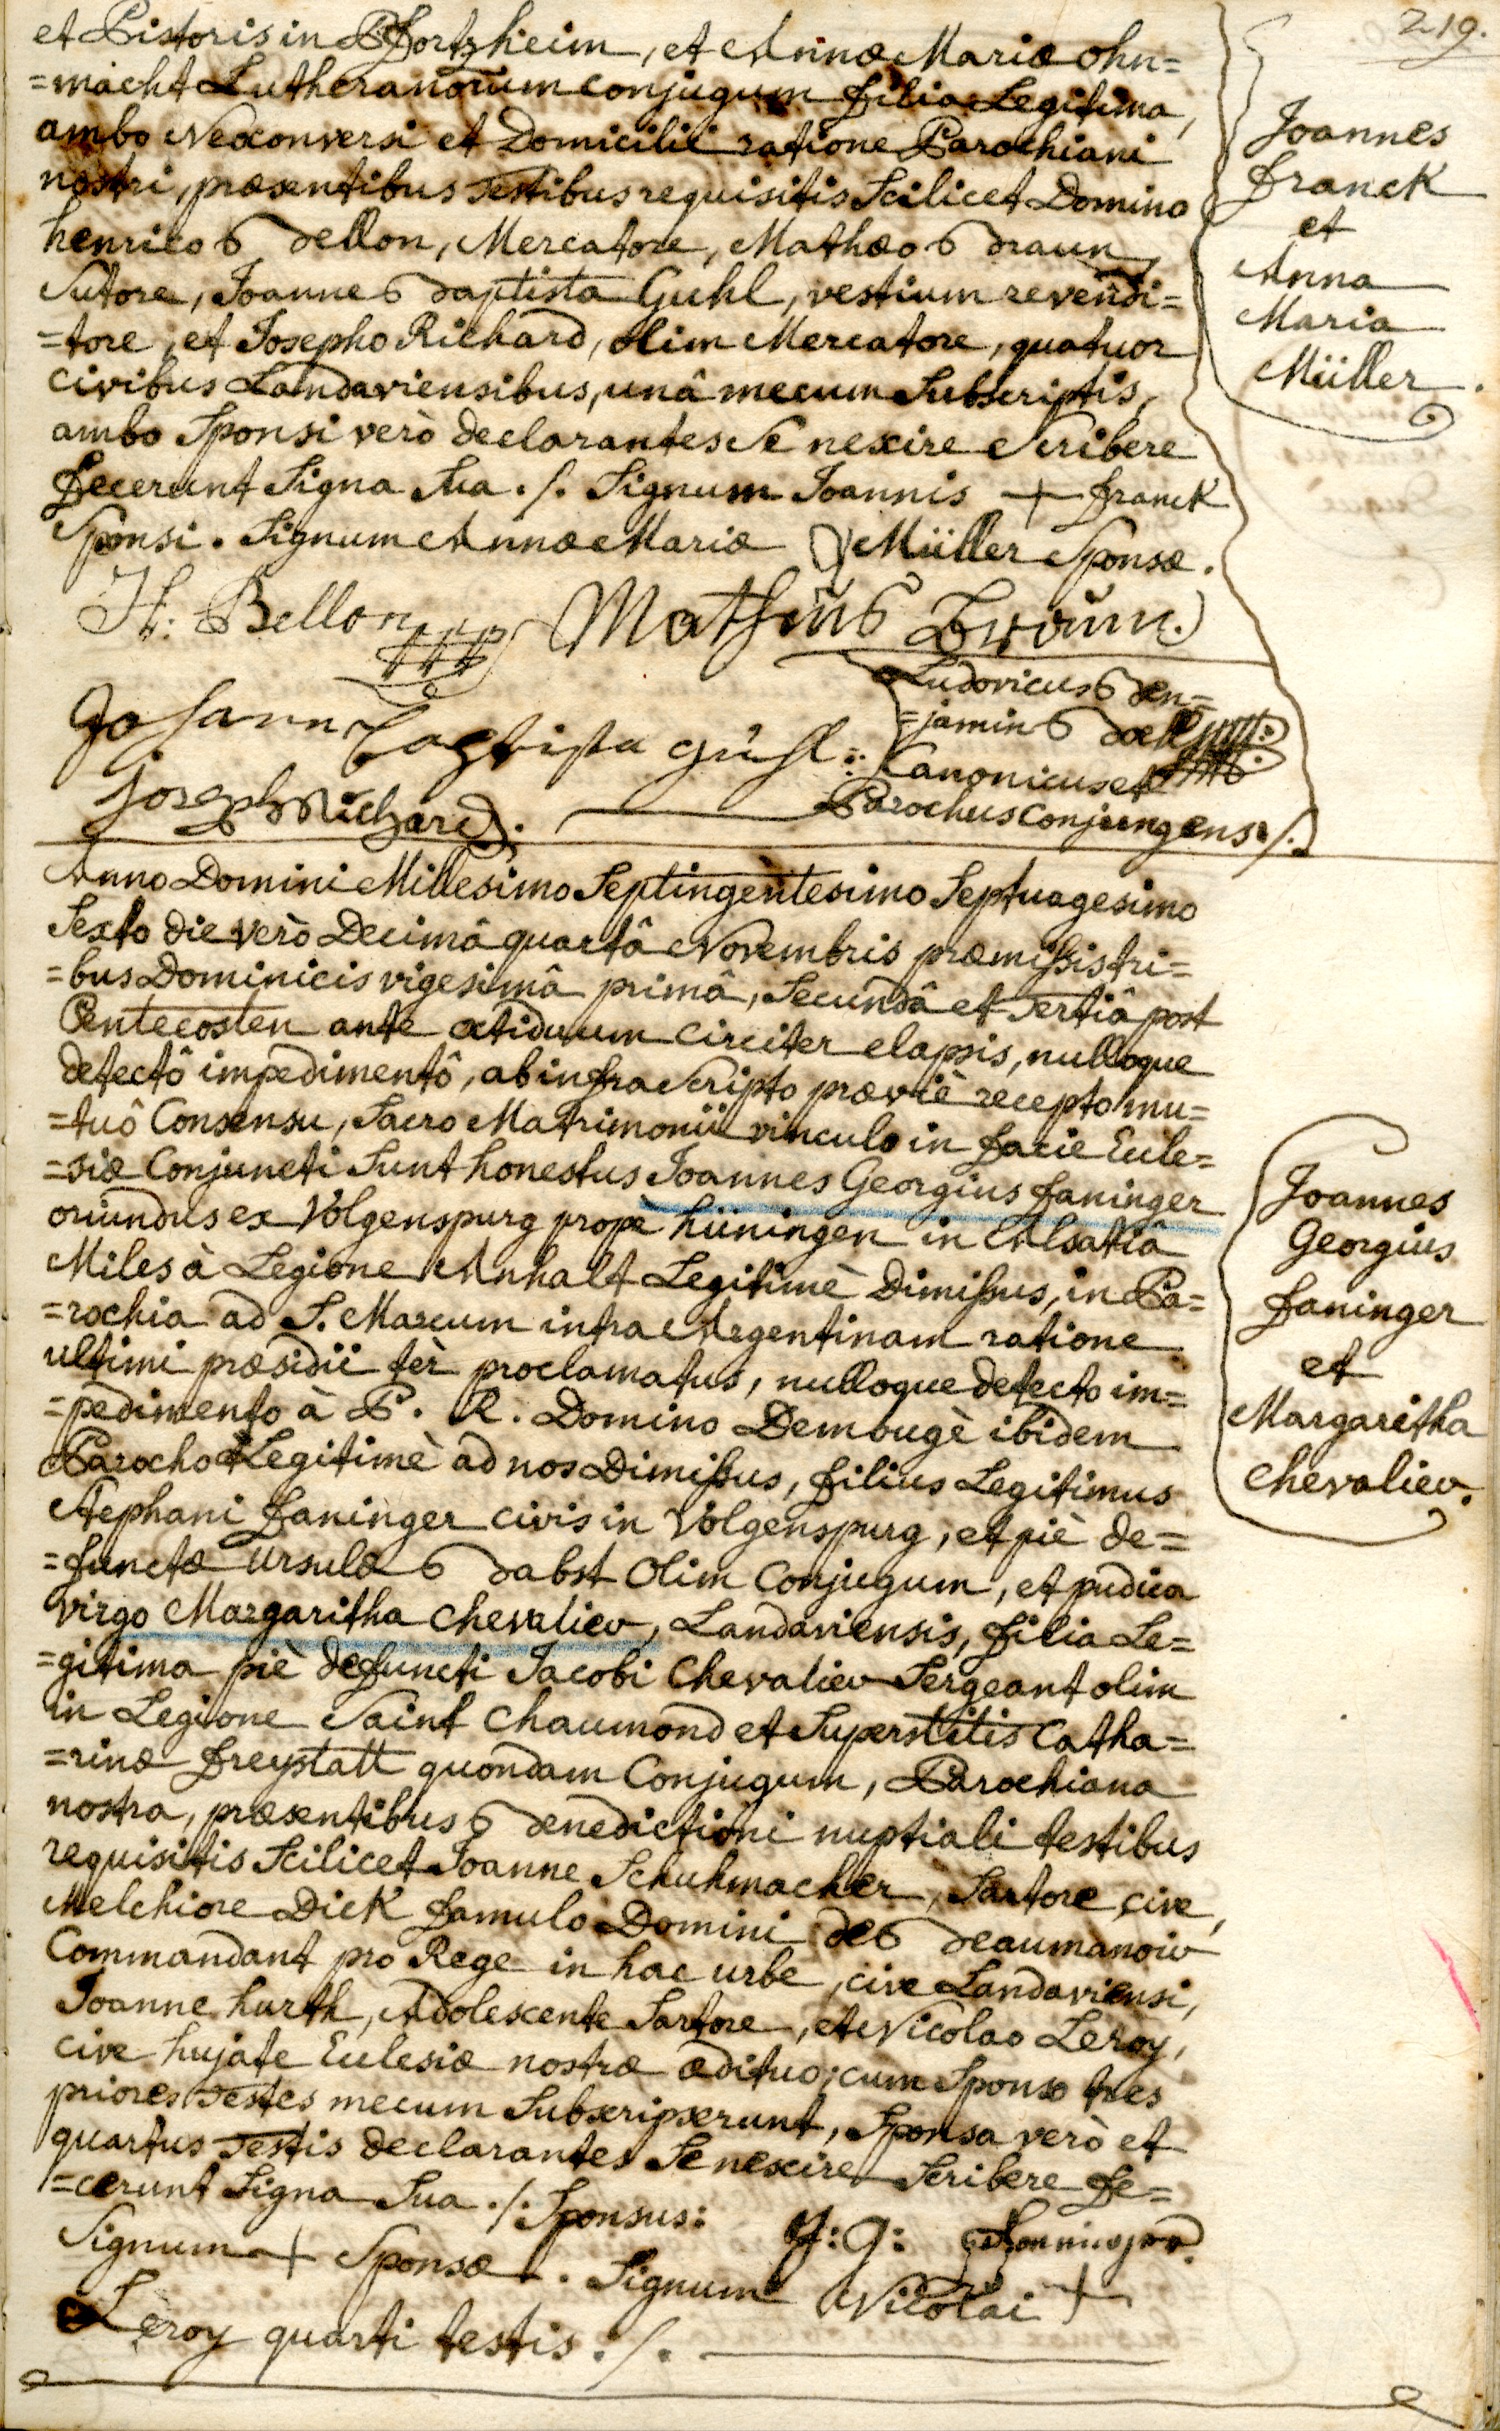 219.
et Pistoris in Pfortzheim, et Annæ Mariæ ohn=
=macht Lutheranorum conjugum filia Legitima,
ambo Neoconversi et Domicilii ratione Parochiani
nostri, præsentibus Testibus requisitis Scilicet Domino
henrico Bellon, Mercatore, Mathæo Braun,
Sutore, Joanne Baptista Guhl, vestium revendi=
=tore, et Josepho Richard, olim Mercatore, quatuor
civibus Landaviensibus, unâ mecum Subscriptis,
ambo Sponsi verò declarantes Se nescire Scribere
fecerunt Signa Sua ./. Signum Joannis + franck
Sponsi. Signum Annæ Mariæ Müller Sponsæ.
H: Bellon Mathius Braun.
Johann Baptista Guhl:
Joseph Richard.
Ludovicus Ben=
=jamin Boell
Canonicus et
Parochus conjungens ./.
Joannes
franck
et
Anna
Maria
Müller.
Anno Domini Millesimo Septingentesimo Septuagesimo
Sexto die verò Decimâ quartâ Novembris præmissis tri=
=bus Dominicis vigesimâ primâ, Secundâ et Tertiâ post
Pentecosten ante octiduum circiter elapsis, nulloque
detectô impedimentô, ab infra Scripto præviè recepto mu=
=tuô Consensu, Sacro Matrimonii vinculo in facie Eccle=
=siæ Conjuncti Sunt honestus Joannes Georgius faninger
oriundus ex Volgenspurg propè hüningen in Alsatiâ
Miles à Legione Anhalt Legitimè Dimissus, in Pa=
=rochia ad S. Marcum intra Argentinam ratione
ultimi præsidii tèr proclamatus, nulloque detecto im=
=pedimento à P. R. Domino Dembugè ibidem
Parocho Legitimè ad nos Dimissus, filius Legitimus
Stephani faninger civis in Volgenspurg, et piè de=
=functæ Ursulæ Babst Olim Conjugum, et pudica
virgo Margaritha Chevaliev, Landaviensis, filia Le=
=gitima piè defuncti Jacobi Chevaliev Sergeant olim
in Legione Saint Chaumond et Superstitis Catha=
=rinæ freystatt quondam Conjugum, Parochiana
nostra, præsentibus Benedictioni nuptiali testibus
requisitis Scilicet Joanne Schuhmacher, Sartore, cive,
Melchiore Dick famulo Domini de Beaumanoiv
Commandant pro Rege in hac urbe, cive Landaviensi,
Joanne hurth, Adolescente Sartore, et Nicolao Leroy,
cive hujate Ecclesiæ nostræ ædituo; cum Sponso tres
priores Testes mecum Subscripserunt, Sponsa verò et
quartus Testis declarantes Se nescire Scribere fe=
=cerunt Signa Sua ./. Sponsus: J: G:
Signum + Sponsæ. Signum Nicolai +
Leroy quarti testis ./.
Joannes
Georgius
faninger
et
Margaritha
Chevaliev.